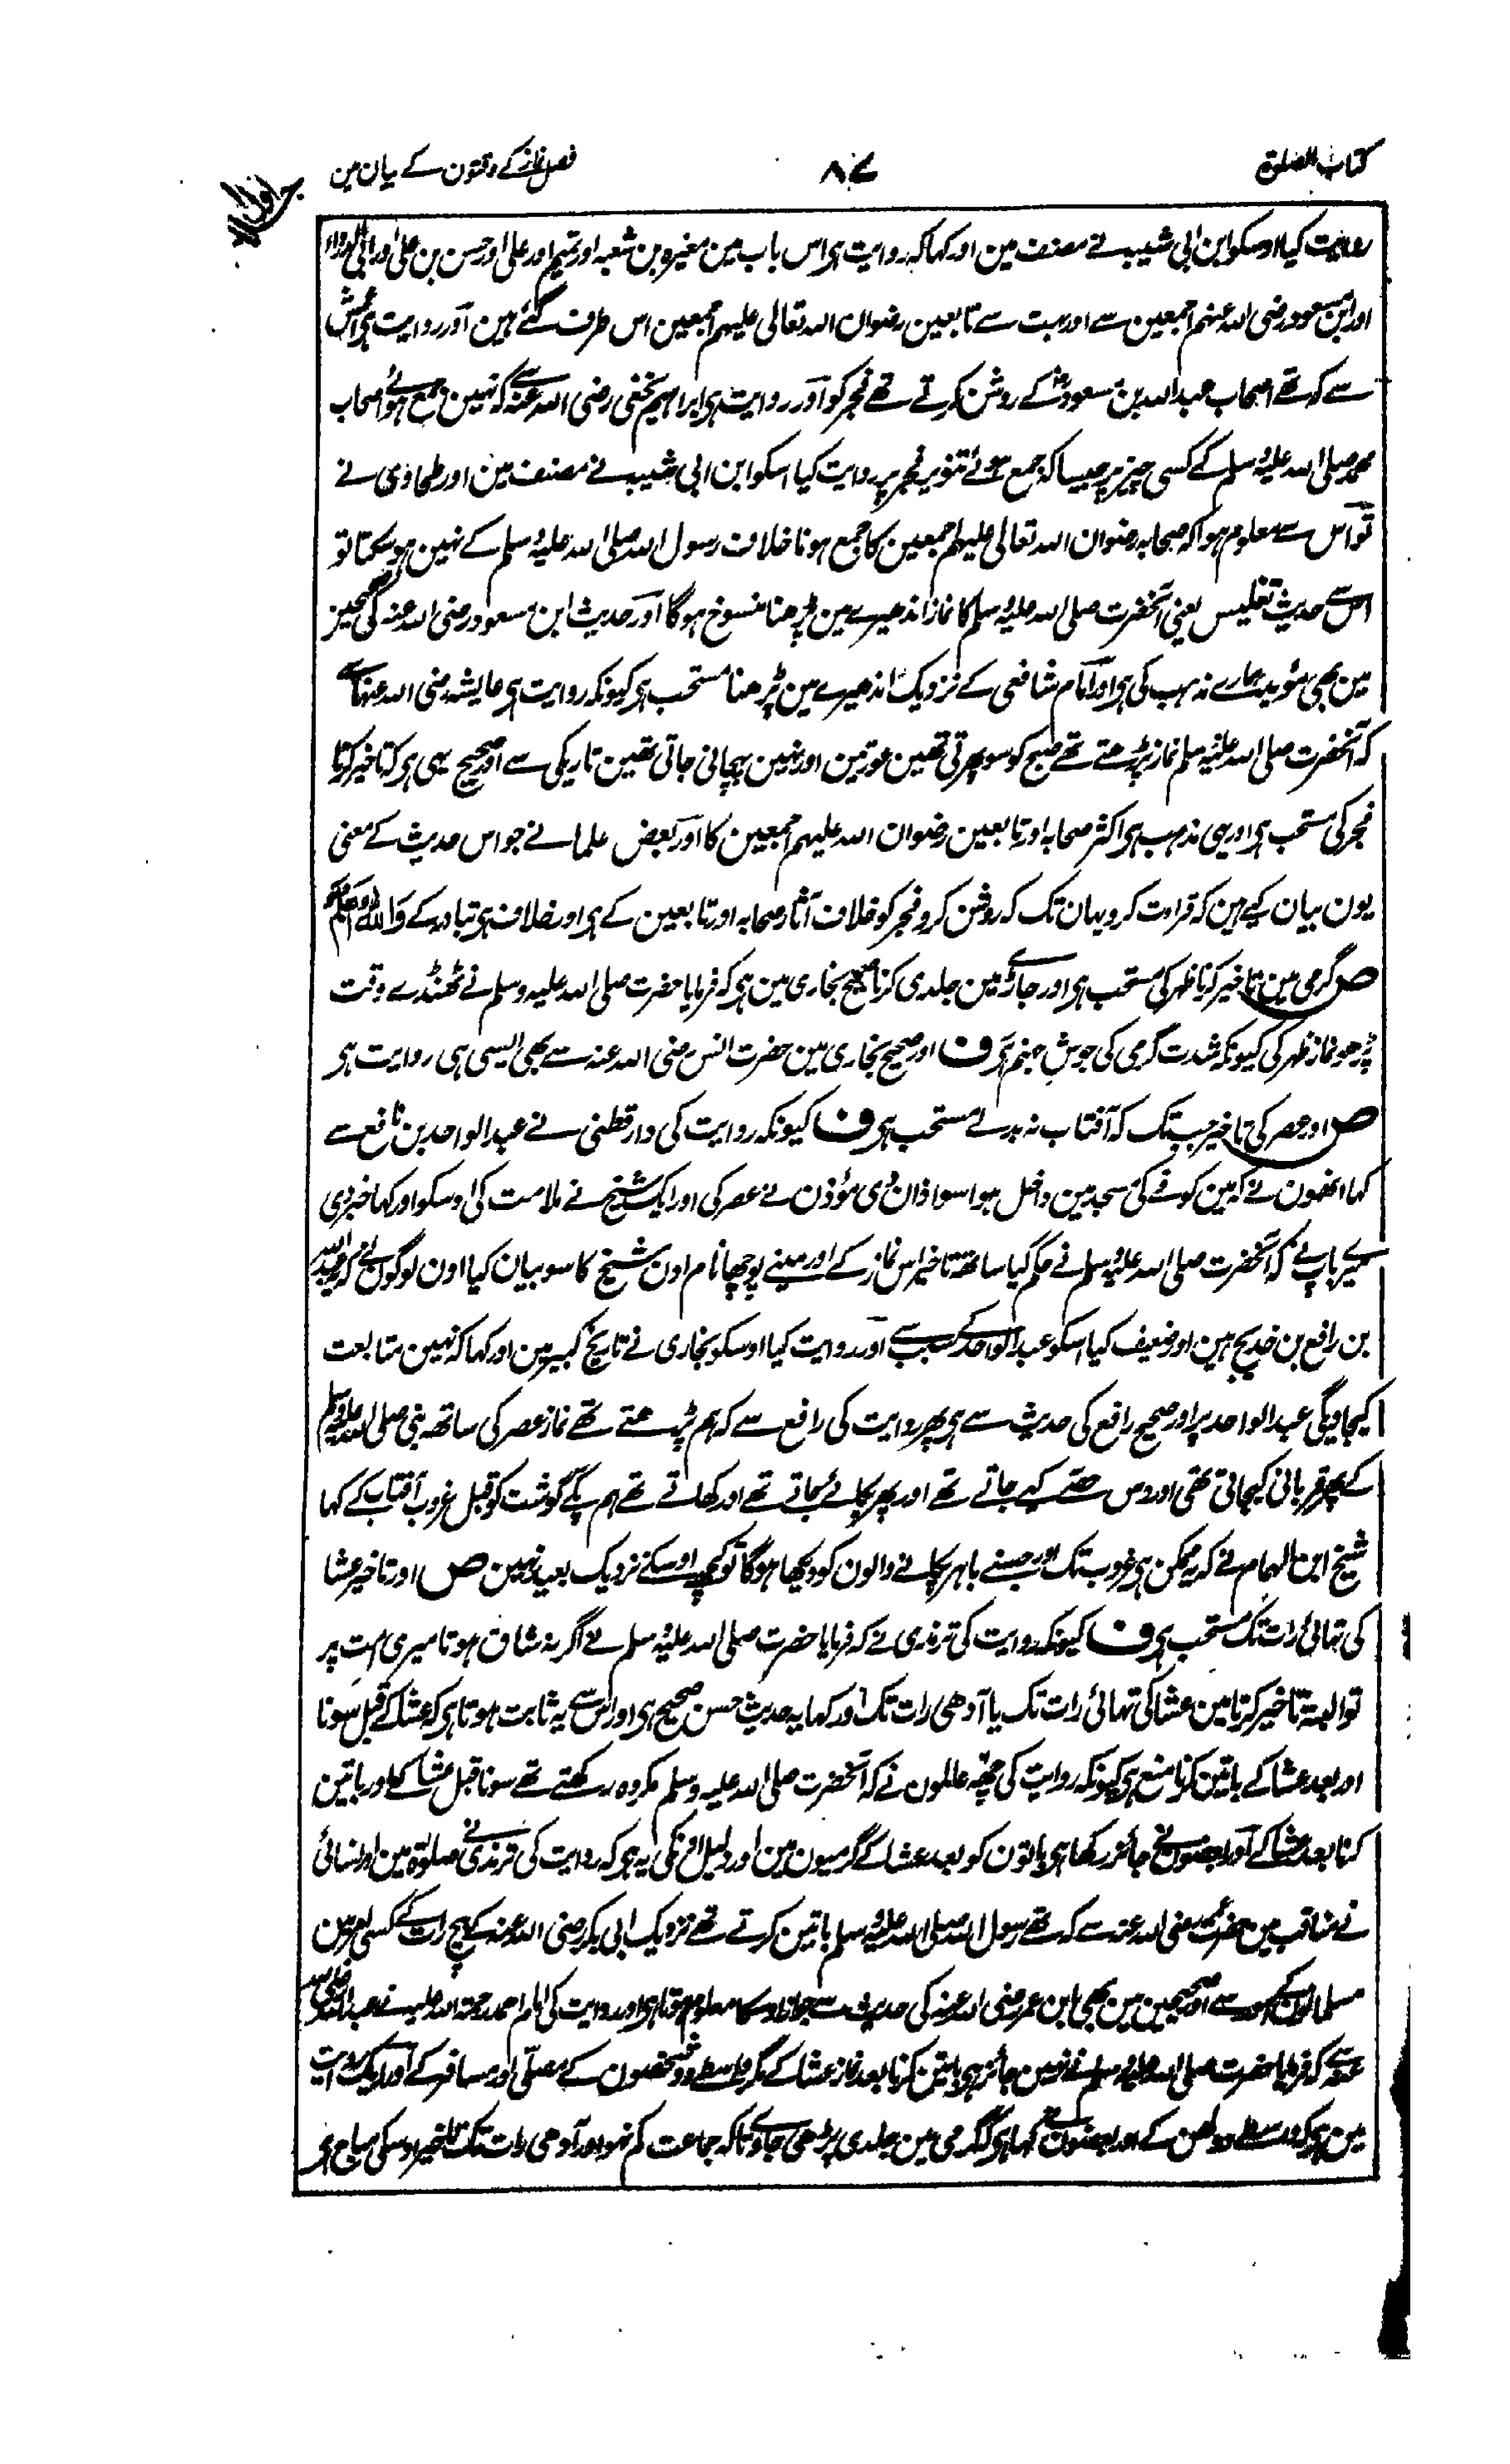 کتاب الصلوة
۸۷
فصل نماز کے وقتون کے بیان مین
جلد اول
روایت کیا اوسکو ابن ابی شیبہ نے مصنف مین اور کہا کہ روایت ہی اس باب مین مغیرہ بن شعبہ اور تمیم اور علی اور حسن بن علی اور ابی الدرداء
اور ابن مسعود رضی اللہ عنہم اجمعین سے اور بہت سے تابعین رضوان اللہ تعالی علیہم اجمعین اس طرف گئے ہین اور روایت ہی اعمش
سے کہ تھے اصحاب عبد اللہ بن مسعودؓ کے روشن کرتے تھے فجر کو اور روایت ہی ابراہیم نخعی رضی اللہ عنہ سے کہ نہین جمع ہوئے اصحاب
محمد صلی اللہ علیہ وسلم کے کسی چیز پر جیسا کہ جمع ہوئے تنویر فجر پر روایت کیا اسکو ابن ابی شیبہ نے مصنف مین اور طحاوی نے
تو اس سے معلوم ہوا کہ صحابہ رضوان اللہ تعالی علیہم اجمعین کا جمع ہونا خلاف رسول اللہ صلی اللہ علیہ وسلم کے نہین ہو سکتا تو
اس سے حدیث تغلیس یعنی آنحضرت صلی اللہ علیہ وسلم کا نماز اندھیرے مین پڑھنا منسوخ ہوگا اور حدیث ابن مسعود رضی اللہ عنہ کی صحیحین
مین بھی مؤید ہمارے مذہب کی ہی اور امام شافعی کے نزدیک اندھیرے مین پڑھنا مستحب ہی کیونکہ روایت ہی عایشہ رضی اللہ عنہا سے
کہ آنحضرت صلی اللہ علیہ وسلم نماز پڑھتے تھے صبح کو سو پھرتی تھین عورتین اور نہین پہچانی جاتی تھین تاریکی سے اور صحیح یہی ہی کہ تاخیر کرنا
فجر کی مستحب ہی اور یہی مذہب ہی اکثر صحابہ اور تابعین رضوان اللہ علیہم اجمعین کا اور بعض علما نے جو اس حدیث کے معنی
یون بیان کیے ہین کہ قراءت کرو یہان تک کہ روشن کرو فجر کو خلاف آثار صحابہ اور تابعین کے ہی اور خلاف ہی تبادر کے واللہ اعلم
ص گرمی مین تاخیر کرنا ظہر کی مستحب ہی اور جاڑے مین جلدی کرنا صحیح بخاری مین ہی کہ فرمایا حضرت صلی اللہ علیہ وسلم نے ٹھنڈے وقت
پڑھو نماز ظہر کی کیونکہ شدت گرمی کی جوش جہنم ہی ف اور صحیح بخاری مین حضرت انس رضی اللہ عنہ سے بھی ایسی ہی روایت ہی
ص اور عصر کی تاخیر جب تک کہ آفتاب نہ بدلے مستحب ہی ف کیونکہ روایت کی دارقطنی نے عبد الواحد بن نافع سے
کہا انھون نے کہ مین کوفے کی مسجد مین داخل ہوا سو اذان دی مؤذن نے عصر کی اور ایک شیخ نے ملامت کی اوسکو اور کہا خبر دی
میرے باپ نے کہ آنحضرت صلی اللہ علیہ وسلم نے حکم کیا ساتھ تاخیر اس نماز کے اور مینے پوچھا نام اون شیخ کا سو بیان کیا اون لوگون نے کہ عبد اللہ
بن رافع بن خدیج ہین اور ضعیف کیا اسکو عبد الواحد کے سبب سے اور روایت کیا اوسکو بخاری نے تاریخ کبیر مین اور کہا کہ نہین متابعت
کیجاویگی عبد الواحد پر اور صحیح رافع کی حدیث سے ہی پھر روایت کی رافع سے کہ ہم پڑھتے تھے نماز عصر کی ساتھ نبی صلی اللہ علیہ وسلم
کے پھر قربانی کیجاتی تھی اور دس حصے کیے جاتے تھے اور پھر پکائے جاتے تھے اور کھاتے تھے ہم پکے گوشت کو قبل غروب آفتاب کے کہا
شیخ ابن الہمام نے کہ یہ ممکن ہی غروب تک اور جسنے باہر پکانے والون کو دیکھا ہوگا تو کچھ اوسکے نزدیک بعید نہین ص اور تاخیر عشا
کی تہائی رات تک مستحب ہی ف کیونکہ روایت کی ترمذی نے کہ فرمایا حضرت صلی اللہ علیہ وسلم نے اگر نہ شاق ہوتا میری امت پر
تو البتہ تاخیر کرتا مین عشا کی تہائی رات تک یا آدھی رات تک اور کہا یہ حدیث حسن صحیح ہی اور اس سے یہ ثابت ہوتا ہی کہ عشا کے قبل سونا
اور بعد عشا کے باتین کرنا منع ہی کیونکہ روایت کی چھ عالمون نے کہ آنحضرت صلی اللہ علیہ وسلم مکروہ رکھتے تھے سونا قبل عشا کے اور باتین
کرنا بعد عشا کے اور بعضون نے جائز رکھا ہی باتون کو بعد عشا کے گرمیون مین اور دلیل اونکی یہ ہی کہ روایت کی ترمذی نے صلوة مین اور نسائی
نے مناقب مین حضرت عمر رضی اللہ عنہ سے کہ تھے رسول اللہ صلی اللہ علیہ وسلم باتین کرتے تھے نزدیک ابی بکر رضی اللہ عنہ کے بیچ رات کے کسی امر مین
مسلمانون کے امور سے اور صحیحین مین بھی ابن عمر رضی اللہ عنہ کی حدیث سے جواز اوسکا معلوم ہوتا ہی اور روایت کی امام احمد رحمة اللہ علیہ نے عبد اللہ رضی اللہ
عنہ سے کہ فرمایا حضرت صلی اللہ علیہ وسلم نے نہین جائز ہی باتین کرنا بعد نماز عشا کے مگر واسطے دو شخصون کے مصلی اور مسافر کے اور ایک روایت
مین ہی کہ واسطے دولھن کے اور بعضون نے کہا ہی کہ گرمی مین جلدی پڑھی جاوے تاکہ جماعت کم نہو اور آدھی رات تک تاخیر اوسکی مباح ہی